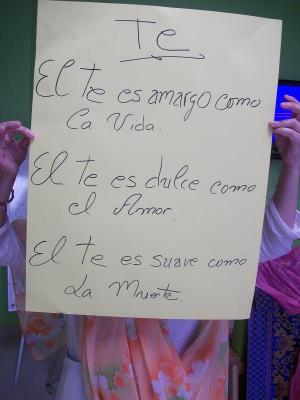 Te
El te es amargo como
la vida.
El te es dulce como
el Amor.
El te es suave como
La Muerte.